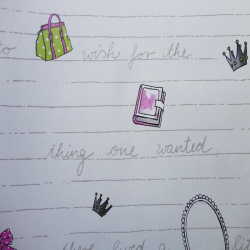 to wish for the
thing one wanted,
there lived a